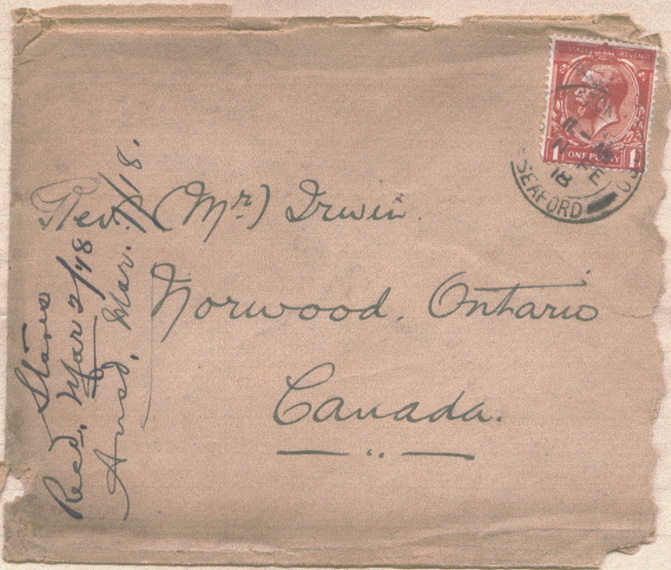 Rev. (Mr) Irwin.
Norwood. Ontario
Canada.
Recd. Mar 2/18
Ansd. Mar. /18.
1 ONE PENNY 1
11
FE
18
SEAFORD